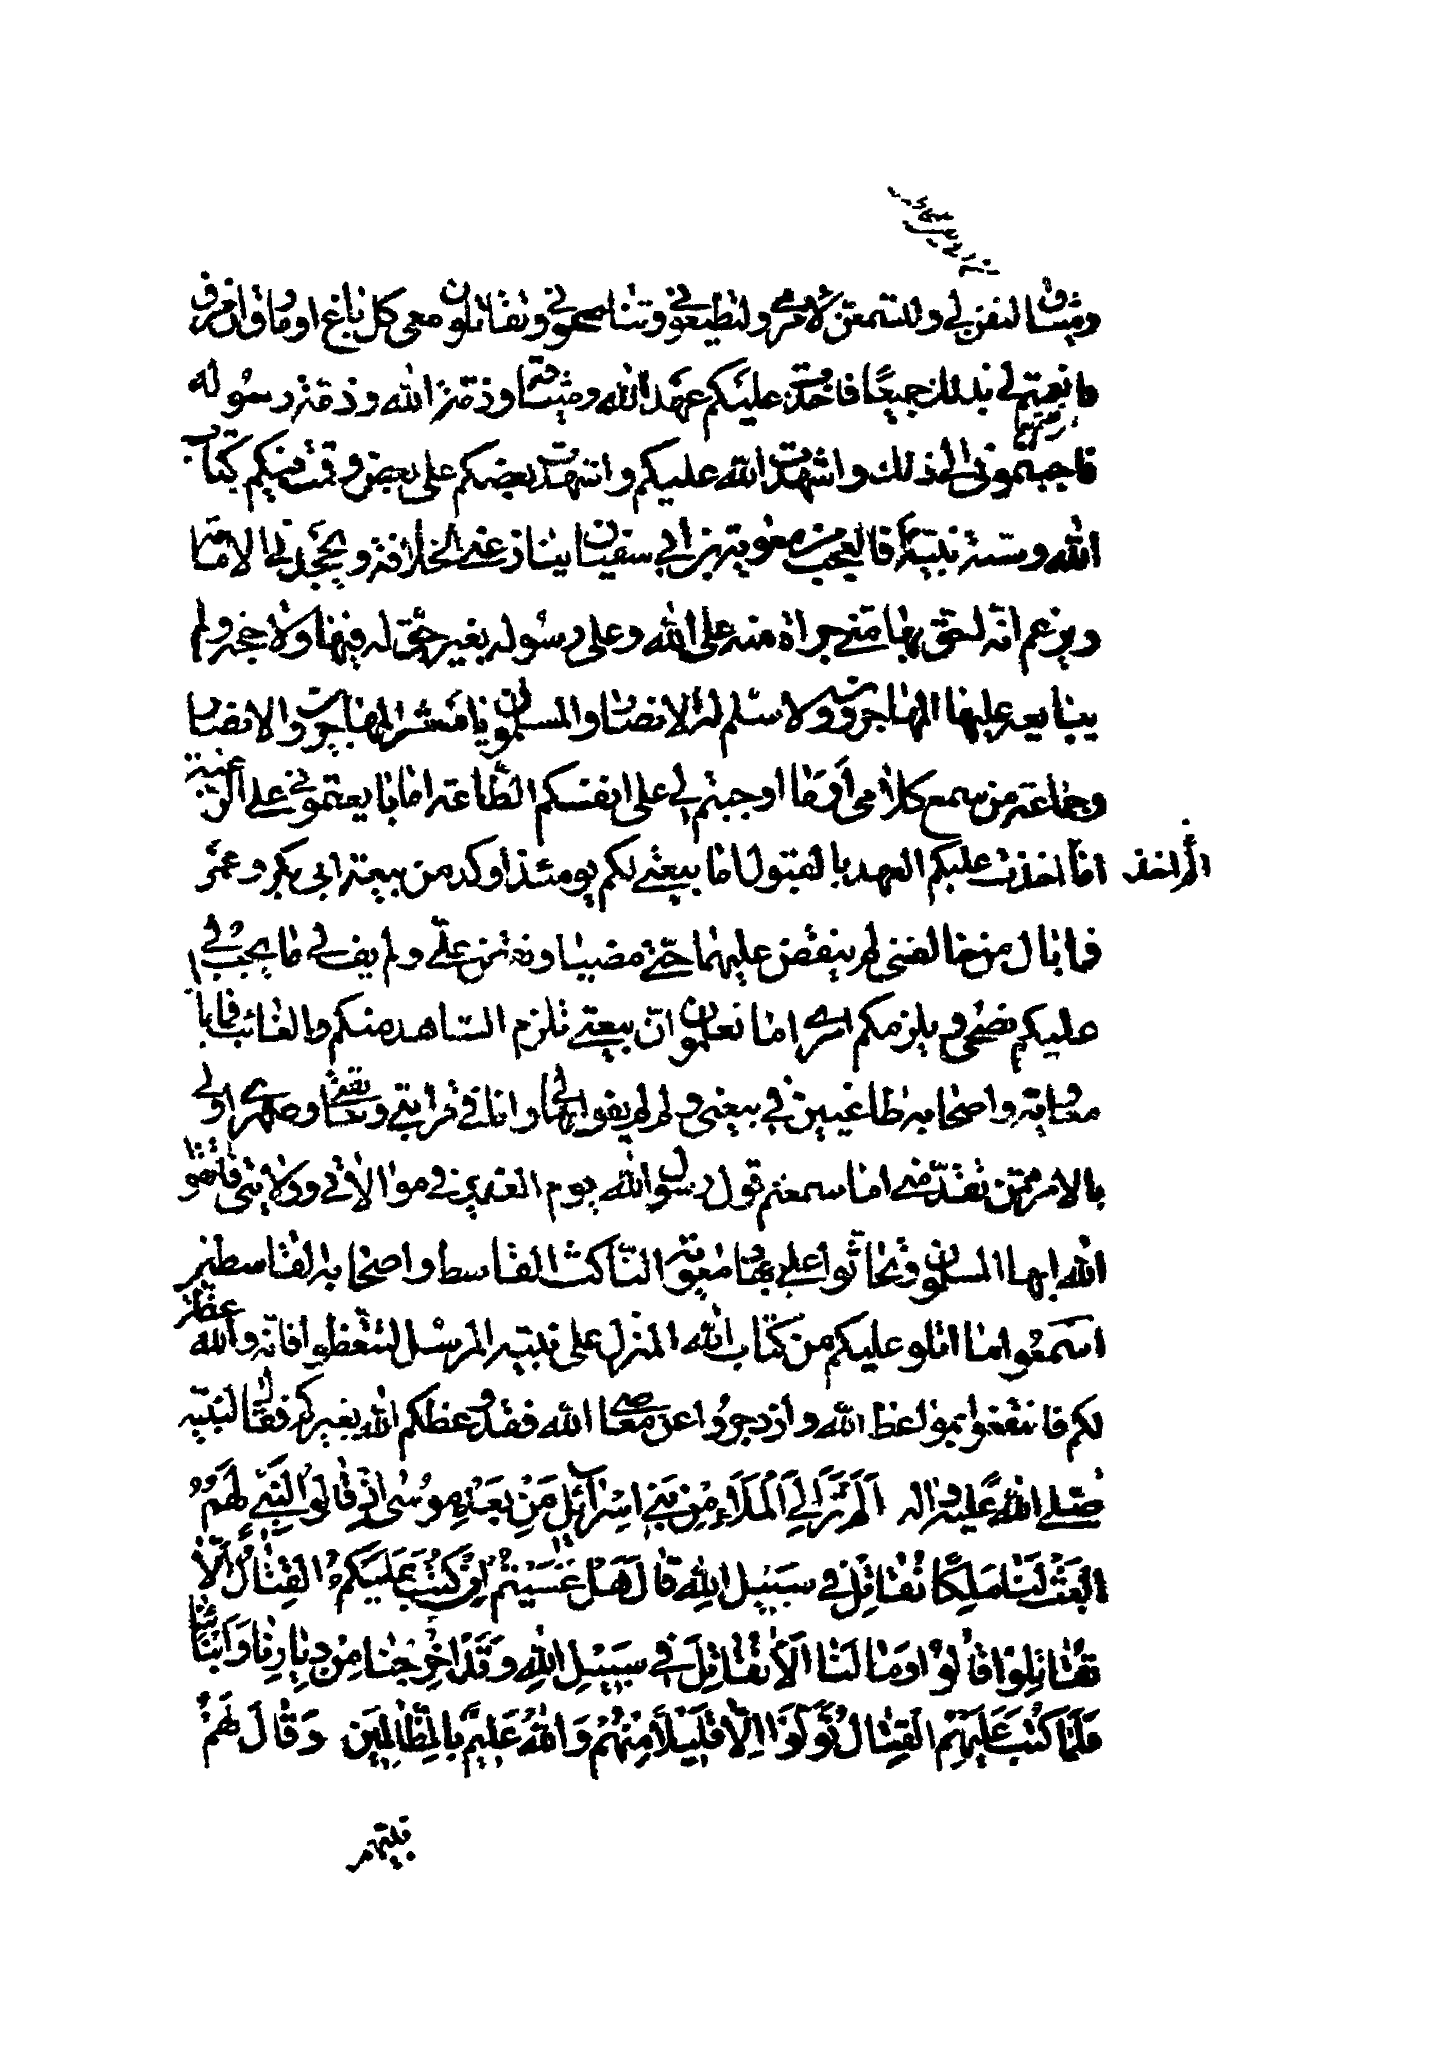 وميثاق لتفن لي ولتسمعن لامري ولتطيعوني وتناصحوني وتقاتلون معي كل باغ او مارق ان مرق
فانعمتم لي بذلك جميعا فاخذت عليكم عهد الله وميثاقه وذمة الله وذمة رسوله
فاجبتموني الى ذلك واشهدت الله عليكم واشهدت بعضكم على بعض وقمت فيكم بكتاب
الله وسنة نبيه فالعجب من معوية بن ابي سفيان ينازعني الخلافة ويجحدني الامامة
ويزعم انه احق بها مني جراة منه على الله وعلى رسوله بغير حق له فيها ولا حجة ولم
يبايعه عليها المهاجرون ولا سلم له الانصار والمسلمون يا معشر المهاجرين والانصار
وجماعة من سمع كلامي او ما اوجبتم لي على انفسكم الطاعة اما بايعتموني على الرغبة
الم اخذ
اما اخذت عليكم العهد بالقبول اما بيعتي لكم يومئذ اوكد من بيعة ابي بكر وعمر
فما بال من خالفني لم ينقض عليهما حتى مضيا ونقض علي ولم يف لي اما يجب لي
عليكم نصحي ويلزمكم امري اما تعلمون ان بيعتي تلزم الشاهد منكم والغائب فما بال
معاوية واصحابه طاغين في بيعتي ولم لم يفوا لي وانا في قرابتي وسابقتي وصهري اولى
بالامر ممن تقدمني اما سمعتم قول رسول الله يوم الغدير في موالاتي وولايتي فاتقوا
الله ايها المسلمون وتحاثوا على جهاد معوية الناكث القاسط واصحابه القاسطين
اسمعوا ما اتلو عليكم من كتاب الله المنزل على نبيه المرسل لتتعظوا فانه والله عظة
لكم فانتفعوا بمواعظ الله وازدجروا عن معاصي الله فقد وعظكم الله بغيركم فقال لنبيه
صَلى اللهُ عَليه واله اَلَم تَرَ اِلَى المَلَاءِ مِن بَنِي اِسْرآئِلَ مِن بَعْدِ مُوسى اِذ قالُوا لِنَبِيٍّ لَهُمُ
ابْعَثْ لَنا مَلِكًا نُقاتِل في سَبيلِ اللهِ قالَ هَل عَسَيْتُم اِن كُتِبَ عَلَيكُمُ القِتالُ اَلّا
تُقاتِلوا قالُوا وَما لَنا اَلّا نُقاتِلَ في سَبيلِ اللهِ وَقَد اُخرِجْنا مِن دِيارِنا وَاَبْنائنا
فَلَمّا كُتِبَ عَلَيهِمُ القِتالُ تَوَلَّوا اِلّا قَليلًا مِنهُم وَاللهُ عَليمٌ بِالظّالِمينَ وَقالَ لَهُم
نبيّهم